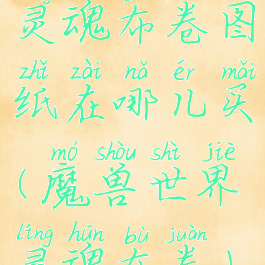 灵魂布卷图
zhǐ zài nǎ ér mǎi
纸在哪儿买
mó shòu shì jiè
(魔兽世界
líng hún bù juàn
灵魂布卷)